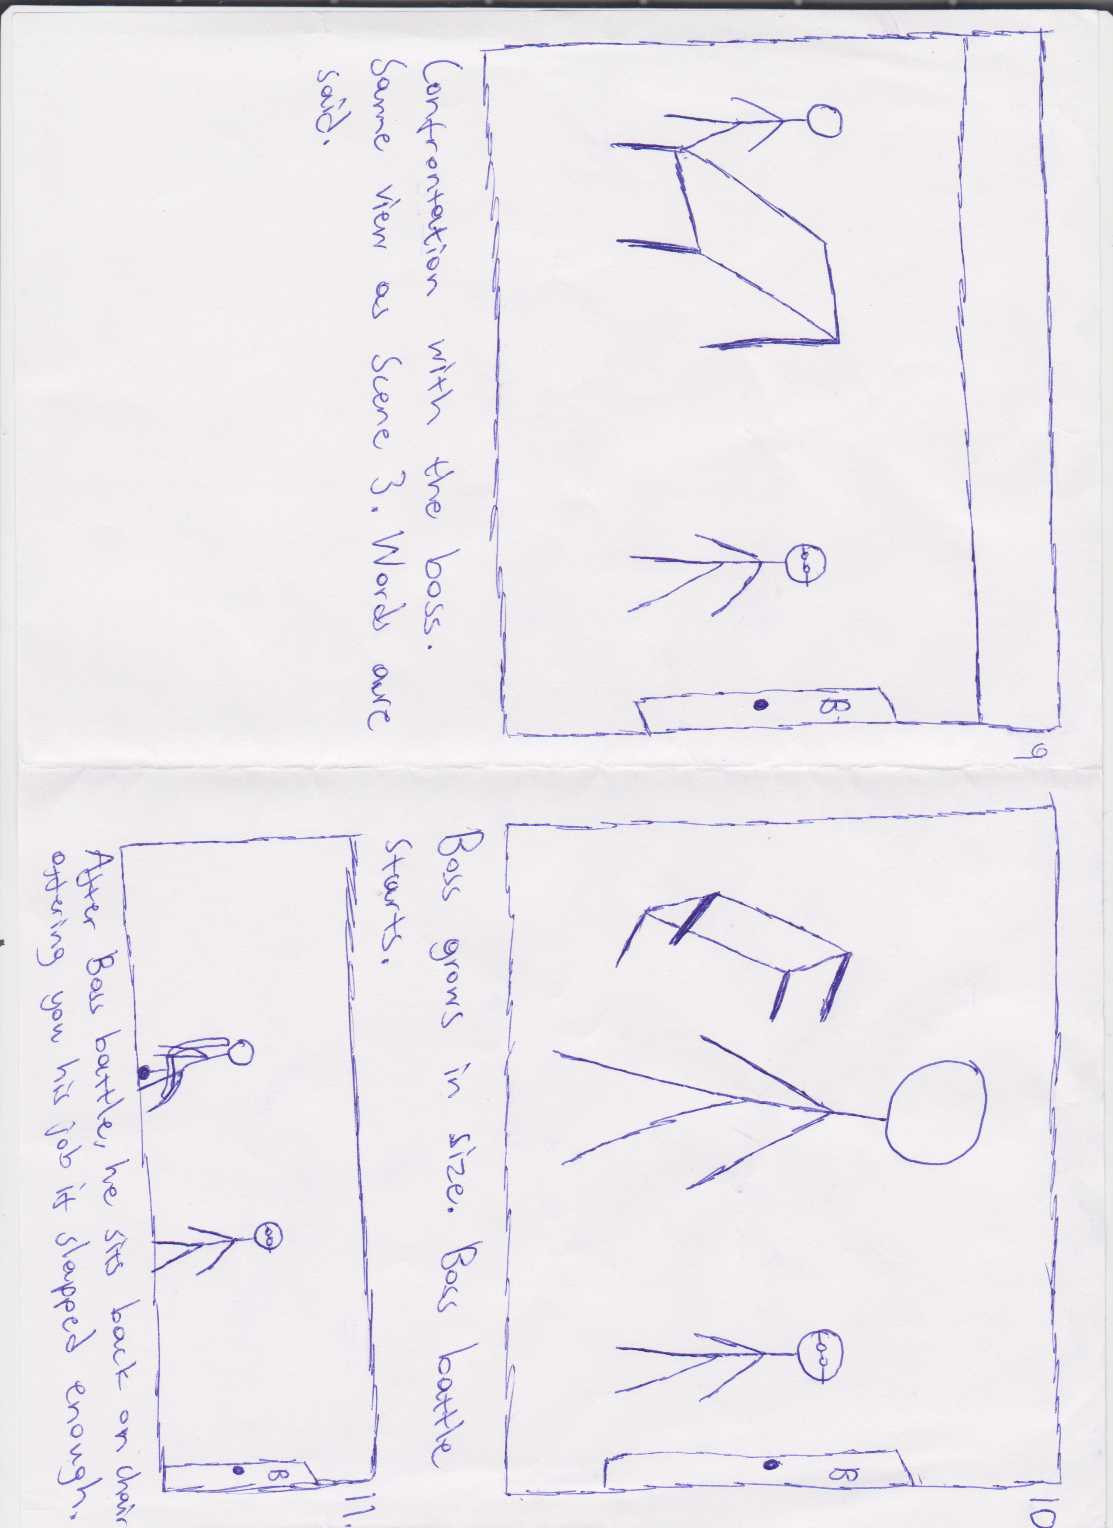 9
B
Confrontation with the boss.
Same view as Scene 3. Words are
said.
10
B
Boss grows in size. Boss battle
starts.
11.
B
After Boss battle, he sits back on chair
offering you his job if slapped enough.